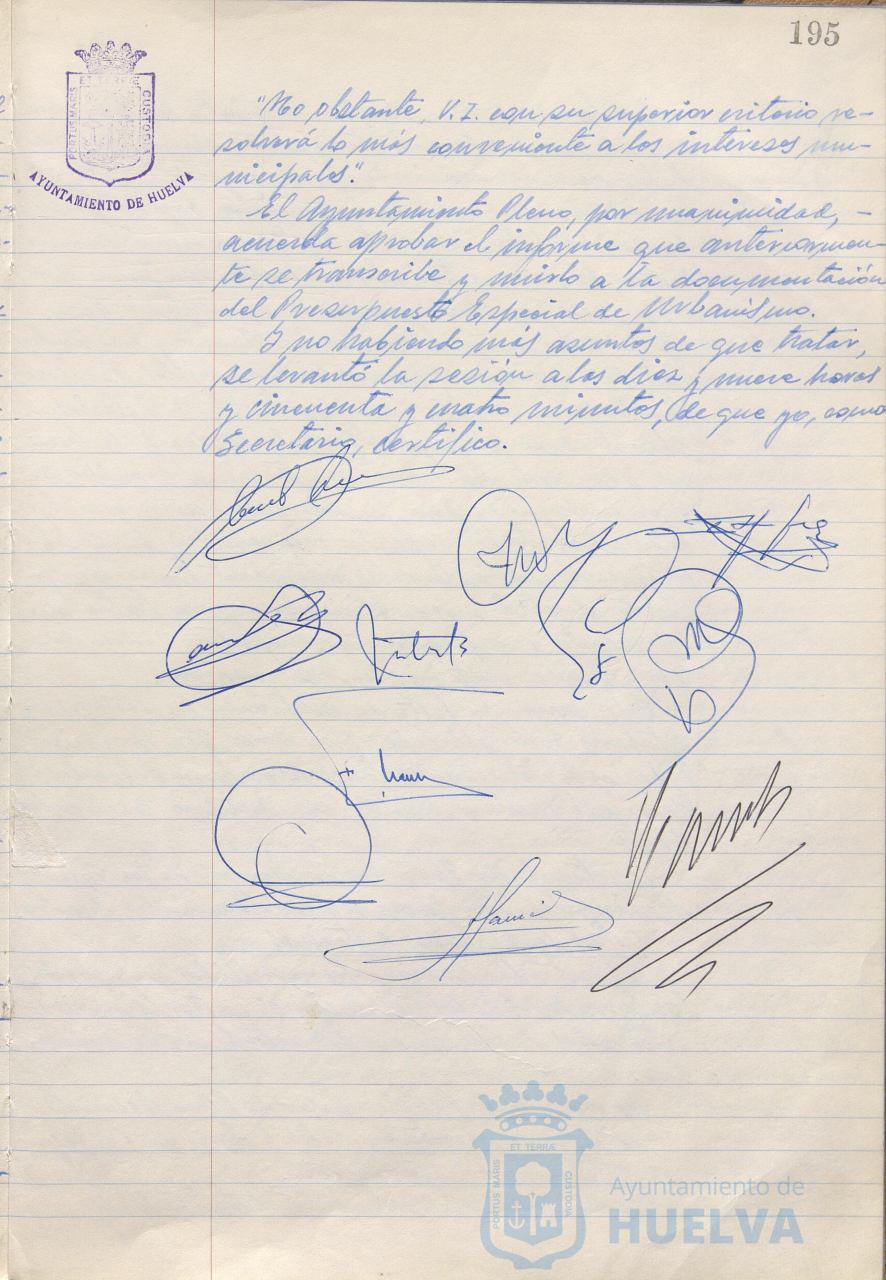 195
ET TERRÆ
PORTUS MARIS
CUSTODIA
AYUNTAMIENTO DE HUELVA
"No obstante, V.I. con su superior criterio re-
solverá lo más conveniente a los intereses mu-
nicipales".
El Ayuntamiento Pleno, por unanimidad, -
acuerda aprobar el informe que anteriormen-
te se transcribe y unirlo a la documentación
del Presupuesto Especial de Urbanismo.
Y no habiendo más asuntos de que tratar,
se levantó la sesión a las diez y nueve horas
y cincuenta y cuatro minutos, de que yo, como
Secretario, certifico.
ET TERRÆ
PORTUS MARIS
CUSTODIA
Ayuntamiento de
HUELVA